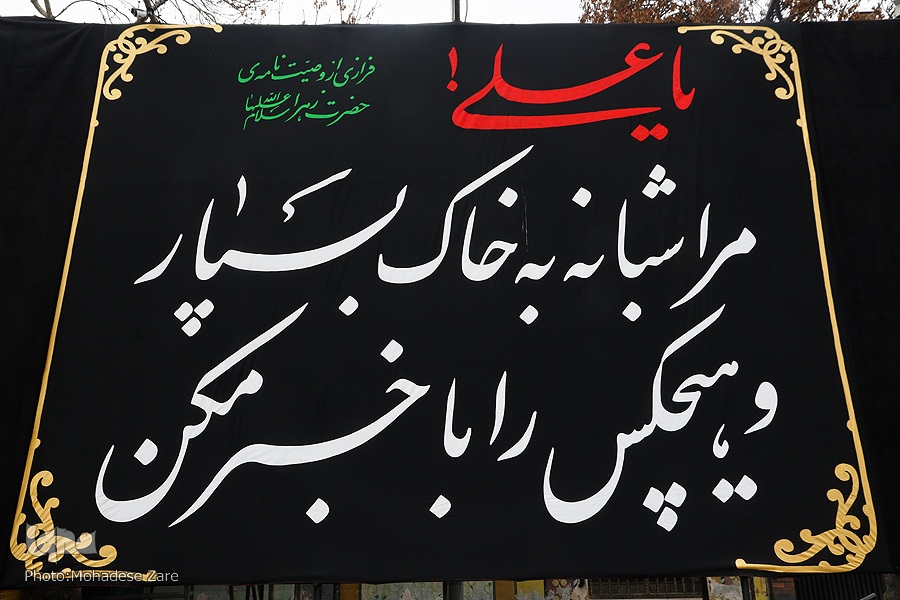 یا علی!
فرازی از وصیت نامه‌ی
حضرت زهرا سلام الله علیها
مرا شبانه به خاک بسپار
و هیچکس را با خبر مکن
Photo:Mohadese Zare